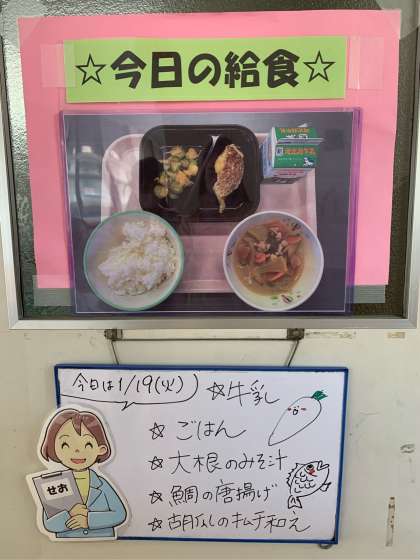 ☆今日の給食☆
今日は1/19(火)
☆牛乳
☆ごはん
☆大根のみそ汁
☆鯛の唐揚げ
☆胡瓜のキムチ和え
せお